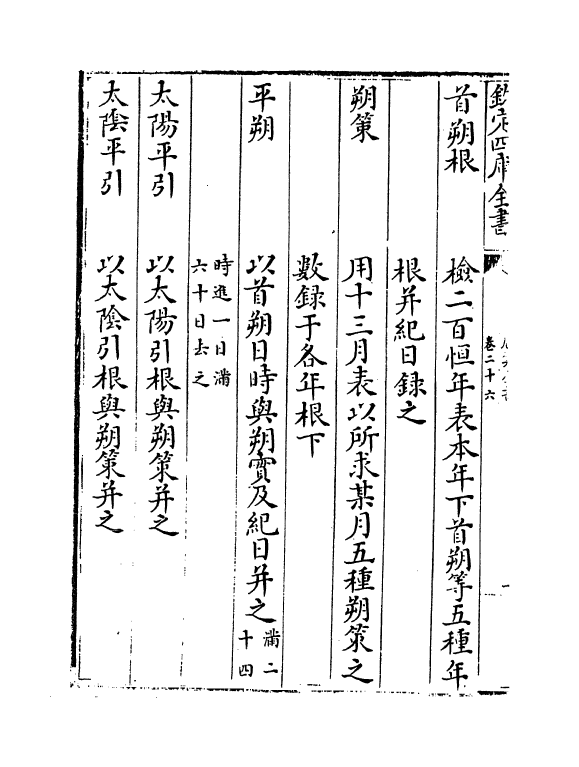 欽定四庫全書
卷二十六
首朔根　檢二百恒年表本年下首朔等五種年
根并紀日録之
朔策　用十三月表以所求某月五種朔策之
數録于各年根下
平朔　以首朔日時與朔實及紀日并之滿二十四
時進一日滿六十日去之
太陽平引　以太陽引根與朔策并之
太陰平引　以太陰引根與朔策并之